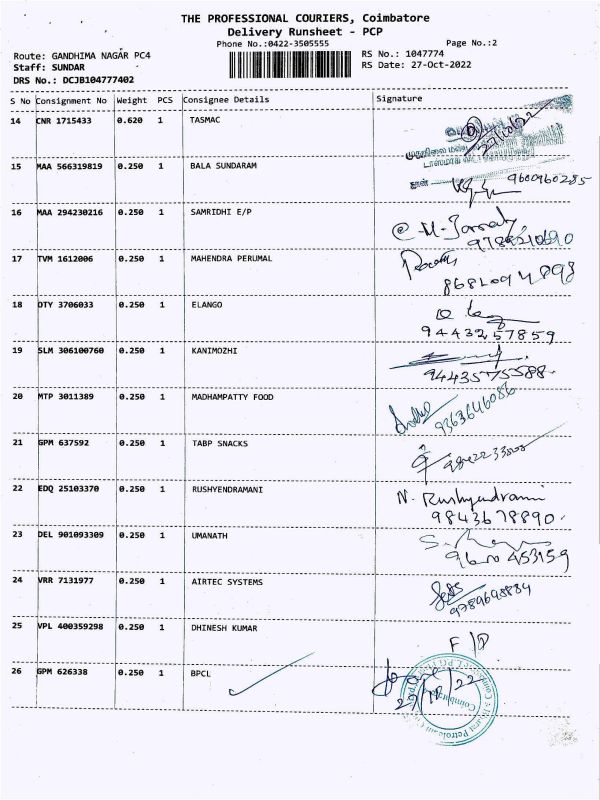 THE PROFESSIONAL COURIERS, Coimbatore
Delivery Runsheet - PCP
Phone No.:0422-3505555
Page No.:2
Route: GANDHIMA NAGAR PC4
RS No.: 1047774
Staff: SUNDAR
RS Date: 27-Oct-2022
DRS No.: DCJB104777402
S No Consignment No Weight PCS Consignee Details Signature
14 CNR 1715433 0.620 1 TASMAC
27/10/22
15 MAA 566319819 0.250 1 BALA SUNDARAM
9600960285
16 MAA 294230216 0.250 1 SAMRIDHI E/P
17 TVM 1612006 0.250 1 MAHENDRA PERUMAL
18 DTY 3706033 0.250 1 ELANGO
9443257859
19 SLM 306100760 0.250 1 KANIMOZHI
9443575588
20 MTP 3011389 0.250 1 MADHAMPATTY FOOD
9363646086
21 GPM 637592 0.250 1 TABP SNACKS
22 EDQ 25103370 0.250 1 RUSHYENDRAMANI
N. Rushyendramni
9843678890.
23 DEL 901093309 0.250 1 UMANATH
24 VRR 7131977 0.250 1 AIRTEC SYSTEMS
9789698834
25 VPL 400359298 0.250 1 DHINESH KUMAR
F/D
26 GPM 626338 0.250 1 BPCL